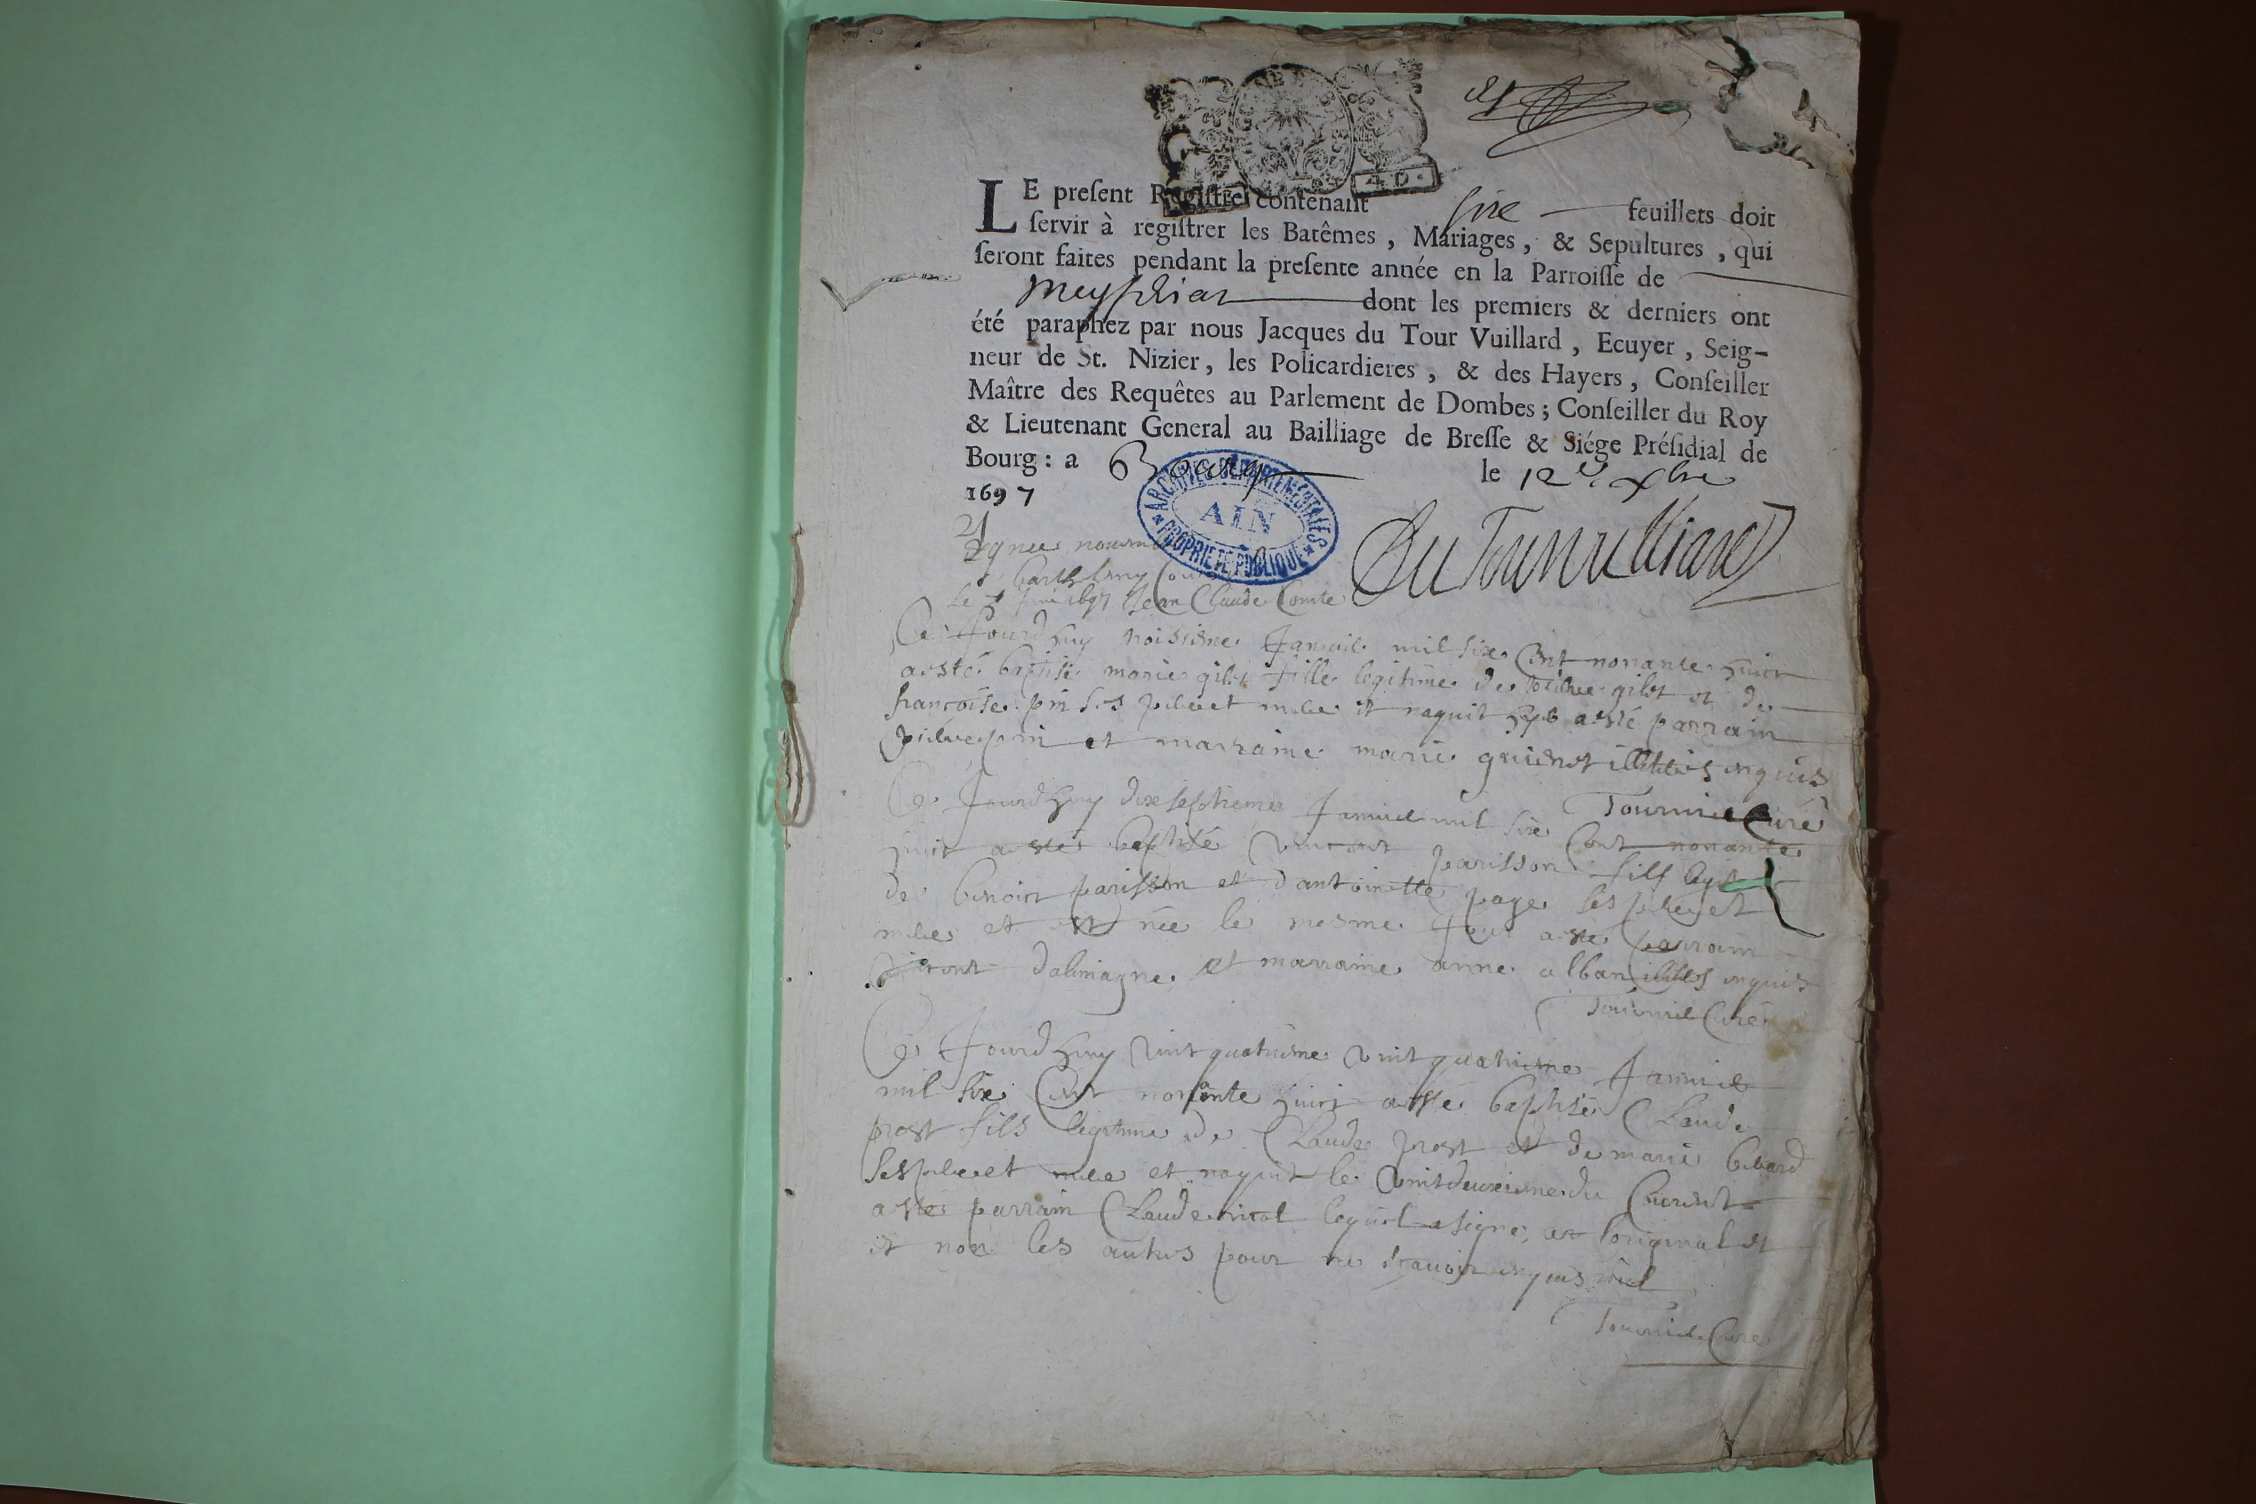 4 D.
LE preſent Regiſtre contenant six feuillets doit
ſervir à regiſtrer les Batêmes, Mariages, & Sepultures, qui
ſeront faites pendant la preſente année en la Parroiſſe de
dont les premiers & derniers ont
été paraphez par nous Jacques du Tour Vuillard, Ecuyer, Seig-
neur de St. Nizier, les Policardieres, & des Hayers, Conſeiller
Maître des Requêtes au Parlement de Dombes; Conſeiller du Roy
& Lieutenant General au Bailliage de Breſſe & Siége Préſidial de
Bourg: a Bourg le 12e xbre
1697
ARCHIVES DÉPARTEMENTALES
AIN
PROPRIÉTÉ PUBLIQUE
Du Tour vuilliard
1697 Jean Claude Comte
Ce Jourdhuy Janvie mil six Cent nonante huict
a esté baptisé marie gilet fille legitime de gilet et de
francoise ses pere et mere et naquit hyer a esté parrain
et marraine marie illiteres enquis
Tournie Curé
Ce Jourdhuy dixseptieme Janvie mil six Cent nonante
huict a esté baptisé Vincent parisson fils legit
de benoict parisson et dantoinette page ses pere et
mere et est née le mesme Jour a esté parrain
dalmagne et marraine anne alban enquis
Tournie Curé
Ce Jourdhuy vint quatrieme vint quatrieme Janvie
mil six Cent nonante huict a esté baptisé Claude
prost fils legitime de Claude prost et de marie
ses pere et mere et naquit le vint deuxieme du Courent
a esté parrain Claude lequel a signé a loriginal et
et non les autres pour ne scavoir enquis
Tournie Cure